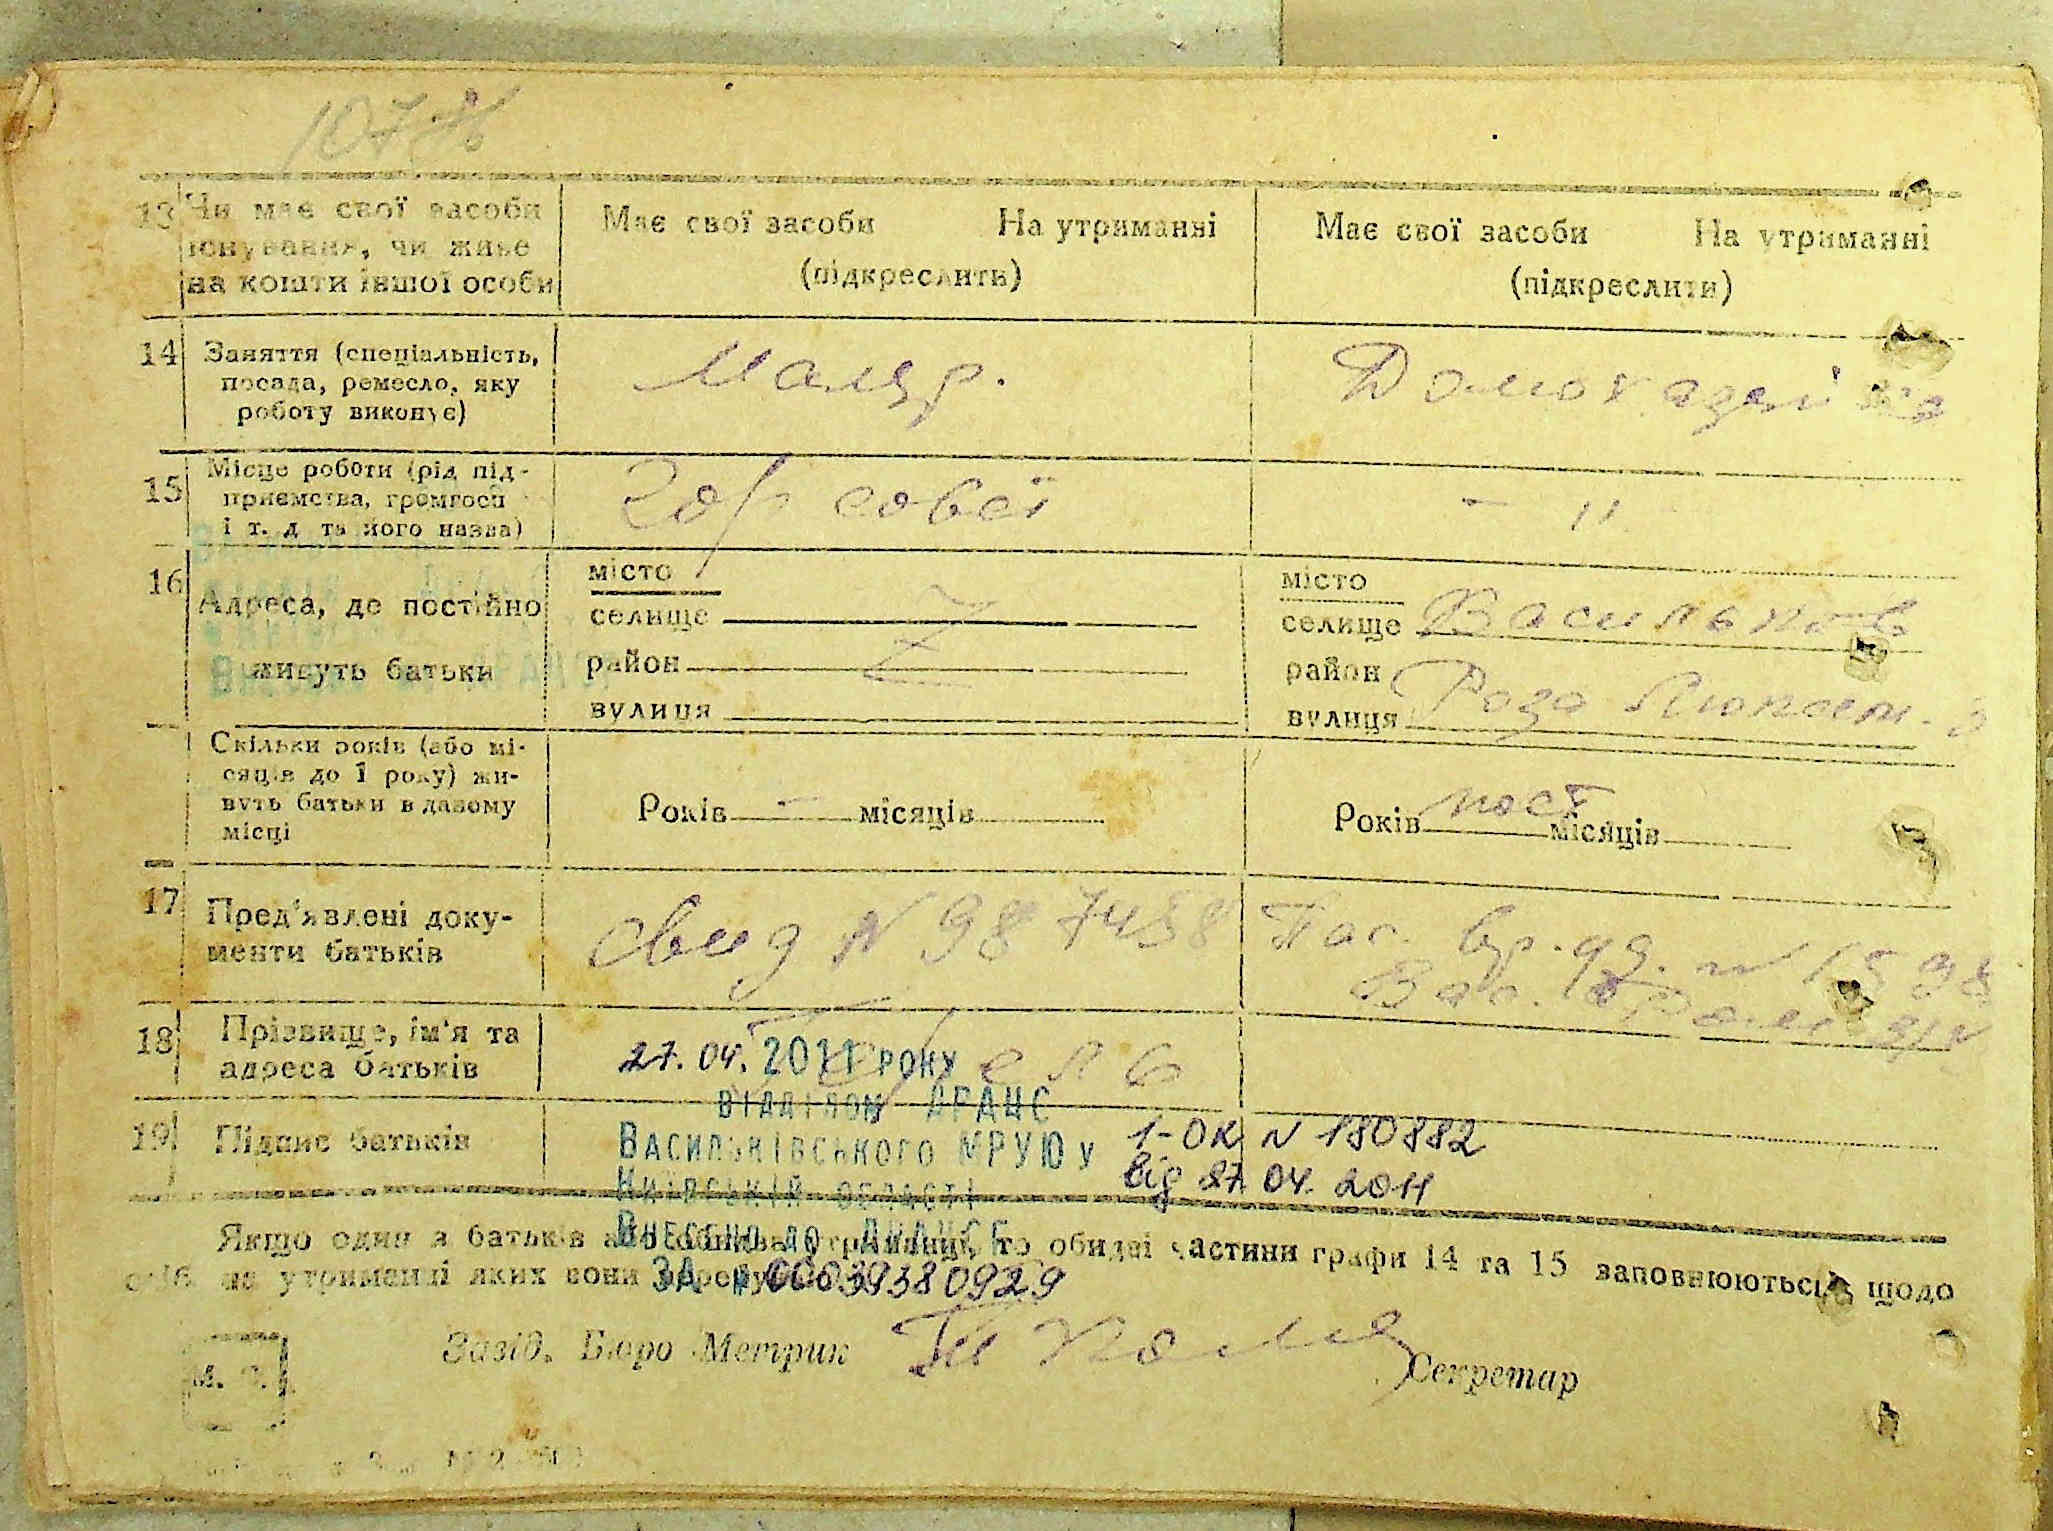 107
13 Чи має свої засоби існування, чи живе на кошти іншої особи
Має свої засоби На утриманні
(підкреслить)
Має свої засоби На утриманні
(підкреслити)
14 Заняття (спеціальність,
посада, ремесло, яку
роботу виконує)
Маляр.
Домохазяйка
15 Місце роботи (рід під-
приємства, громгосп
і т. д. та його назва)
Гор совєт
– "
16 Адреса, де постійно
живуть батьки
місто
селище
район
вулиця
місто
селище Васильков
район
вулиця Роза Люксем. 3
Скільки років (або мі-
сяців до 1 року) жи-
вуть батьки в даному
місці
Років – місяців
Років пост місяців
17 Пред'явлені доку-
менти батьків
Свид N 987438
Пас. вр. уд. N 1538
18 Прізвище, ім'я та
адреса батьків
27.04. 2011 року
відділом ДРАЦС
19 Підпис батьків
Васильківського МРУЮ у
Київській області
1-ОК N 180882
від 27.04.2011
Внесено до
Якщо один з батьків або обидва утриманці, то обидві частини графи 14 та 15 заповнюються щодо
осіб на утриманні яких вони перебувають
ЗА № 00039380929
Завід. Бюро Метрик
Секретар
М. П.